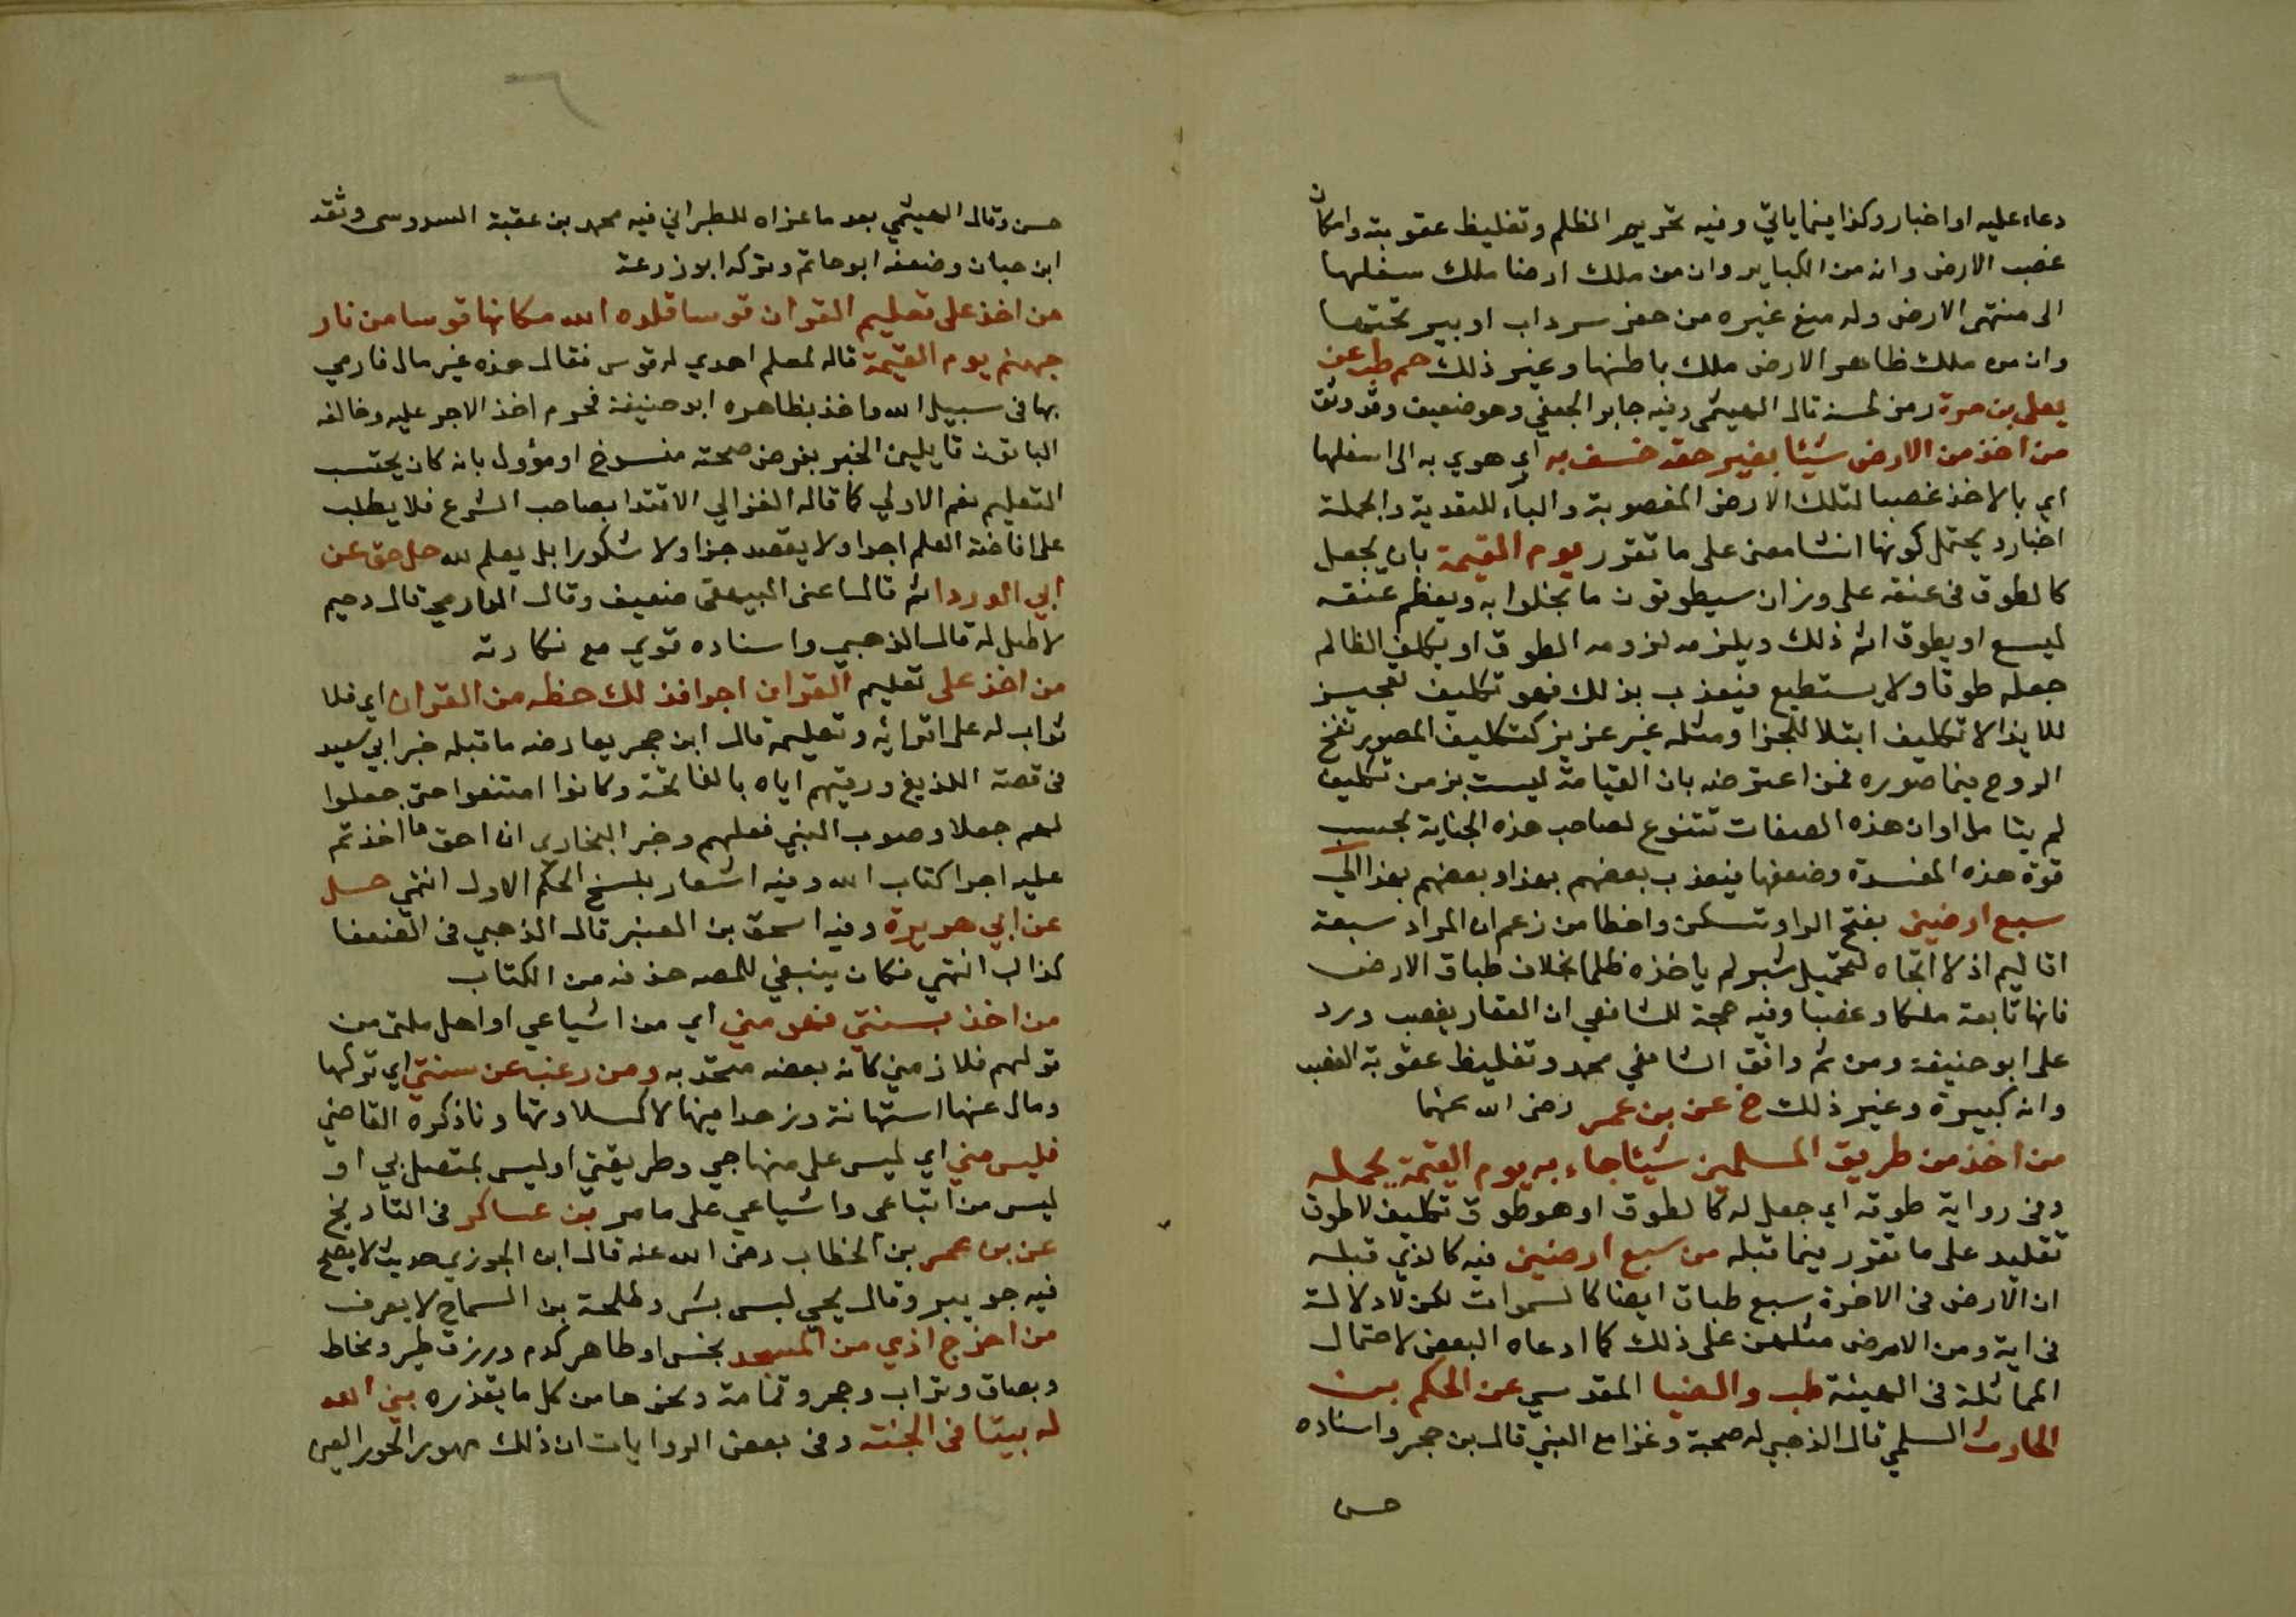 دعاء عليه او اخبار وكذا فيما ياتي وفيه تحريم الظلم وتغليظ عقوبته وامكان
غصب الارض وانه من الكباير وان من ملك ارضا ملك سفلها
الى منتهى الارض وله منع غيره من حفر سرداب او بير تحتها
وان من ملك ظاهر الارض ملك باطنها وغير ذلك حم طب عن
يعلى بن مرة رمز لحسنه قال الهيثمي وفيه جابر الجعفي وهو ضعيف وقد وثق
من اخذ من الارض شيئا بغير حقه خسف به اي هوي به الى اسفلها
اي بالاخذ غصبا لتلك الارض المغصوبة والباء للتعدية والجملة
اخبار ويحتمل كونها انشا معنى على ما تقرر يوم القيمة بان يجعل
كالطوق في عنقه على وزان سيطوقون ما بخلوا به ويعظم عنقه
ليسع او يطوق اثم ذلك ويلزمه لزومه الطوق او يكلف الظالم
جعله طوقا ولا يستطيع فيعذب بذلك فهو تكليف تعجيز
للايذا لا تكليف ابتلا للجزا ومثله غير عزيز كتكليف المصور نفخ
الروح فيما صوره فمن اعترضه بان القيامة ليست بزمن تكليف
لم يتامل او ان هذه الصفات تتنوع لصاحب هذه الجناية بحسب
قوة هذه المفسدة وضعفها فيعذب بعضهم بهذا وبعضهم بهذا الى
سبع ارضين بفتح الرا وتسكن واخطا من زعم ان المراد سبعة
اقاليم اذ لا اتجاه لتحميل شبر لم ياخذه ظلما بخلاف طباق الارض
فانها تابعة ملكا وغصبا وفيه حجة للشافعي ان العقار يغصب ورد
على ابو حنيفة ومن ثم وافق الشافعي محمد وتغليظ عقوبة الغصب
وانه كبيرة وغير ذلك خ عن بن عمر رضى الله عنهما
من اخذ من طريق المسلمين شيئا جاء به يوم القيمة يحمله
وفى رواية طوقه اي جعل له كالطوق او هو طوق تكليف لا طوق
تقليد على ما تقرر فيما قبله من سبع ارضين فيه كالذي قبله
ان الارض فى الاخرة سبع طباق ايضا كالسموات لكن لا دلالة
فى اية ومن الارض مثلهن على ذلك كما ادعاه البعض لاحتمال
المماثلة فى الهيئة طب والضيا المقدسي عن الحكم بن
الحارث السلمي قال الذهبي له صحبة وغزا مع النبي قال بن حجر واسناده
حسن
٦
حسن وقال الهيثمي بعد ما عزاه للطبراني فيه محمد بن عقبة السدوسى وثقه
ابن حبان وضعفه ابو حاتم وتركه ابو زرعة
من اخذ على تعليم القوان قوسا قلده الله مكانها قوسا من نار
جهنم يوم القيمة قاله لمعلم اهدي له قوس فقال هذه غير مال فارمي
بها فى سبيل الله واخذ بظاهره ابو حنيفة فحرم اخذ الاجر عليه وخالفه
الباقون قايلين الخبر بفرض صحته منسوخ او مؤول بانه كان يحتسب
التعليم نعم الاولي كما قاله الغزالي الاقتدا بصاحب الشرع فلا يطلب
على افاضة العلم اجرا ولا يقصد جزا ولا شكورا بل يعلم لله حل هق عن
ابي الوردا ثم قالا اعنى البيهقى ضعيف وقال الدارمي قال دحيم
لا اصل له قال الذهبي واسناده قوي مع نكارته
من اخذ على تعليم القرآن اجرا فذلك حظه من القران اي فلا
ثواب له على اقرائه وتعليمه قال ابن حجر يعارضه ما قبله خبر ابي سعيد
فى قصة اللذيغ ورقيتهم اياه بالفاتحة وكانوا امتنعوا حتى جعلوا
لهم جعلا وصوب النبي فعلهم وخبر البخارى ان احق ما اخذتم
عليه اجرا كتاب الله وفيه اشعار بنسخ الحكم الاول انتهي حل
عن ابي هريرة وفيه اسحق بن العنبر قال الذهبي فى الضعفا
كذاب انتهي فكان ينبغي للمصه حذفه من الكتاب
من اخذ بسنتي فهو مني اي من اشياعي او اهل ملتى من
قولهم فلان مني كانه بعضه متحد به ومن رغب عن سنتي اي تركها
ومال عنها استهانة وزهدا فيها لا كسلا وتهاونا ذكره القاضي
فليس مني اي ليس على منهاجي وطريقتي او ليس بمتصل بي او
ليس من اتباعى واشياعي على ما مر بن عساكر فى التاريخ
عن بن عمر بن الخطاب رضى الله عنه قال ابن الجوزي حديث لا يصح
فيه جويبر وقال يحيي ليس بشي وطلحة بن السماح لا يعرف
من اخرج اذي من المسجد نجس او طاهر كدم وزرق طير ومخاط
وبصاق وتراب وحجر وقمامة ونحوها من كل ما يقذره بني الله
له بيتا فى الجنة وفى بعض الروايات ان ذلك مهور الحور العين